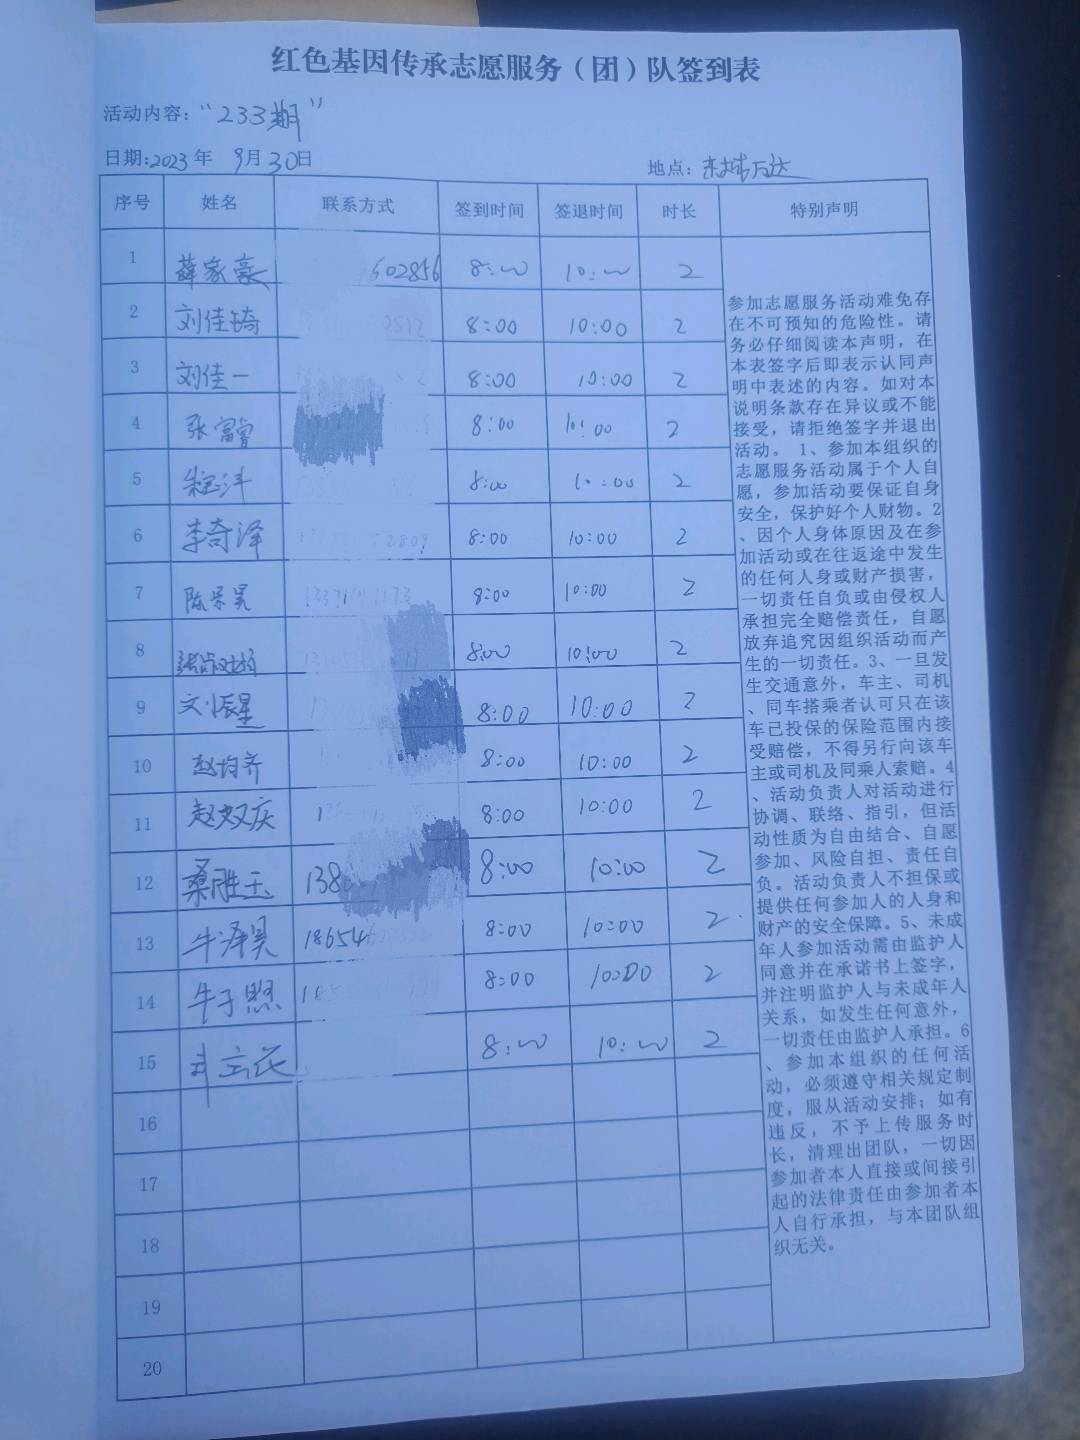 红色基因传承志愿服务（团）队签到表
活动内容：“233期”
日期:2023年 9月30日 地点：东城万达
序号 姓名 联系方式 签到时间 签退时间 时长 特别声明
1 薛家豪 602856 8:00 10:00 2
2 刘佳琦 8:00 10:00 2
3 刘佳一 8:00 10:00 2
4 张富 8:00 10:00 2
5 8:00 10:00 2
6 李奇泽 2809 8:00 10:00 2
7 陈昊 8:00 10:00 2
8 8:00 10:00 2
9 刘宸星 8:00 10:00 2
10 赵均齐 8:00 10:00 2
11 赵双庆 8:00 10:00 2
12 桑胜玉 138 8:00 10:00 2
13 牛泽昊 18654 8:00 10:00 2
14 牛子煦 8:00 10:00 2
15 8:00 10:00 2
16
17
18
19
20
参加志愿服务活动难免存
在不可预知的危险性。请
务必仔细阅读本声明，在
本表签字后即表示认同声
明中表述的内容。如对本
说明条款存在异议或不能
接受，请拒绝签字并退出
活动。 1、参加本组织的
志愿服务活动属于个人自
愿，参加活动要保证自身
安全，保护好个人财物。2
、因个人身体原因及在参
加活动或在往返途中发生
的任何人身或财产损害，
一切责任自负或由侵权人
承担完全赔偿责任，自愿
放弃追究因组织活动而产
生的一切责任。3、一旦发
生交通意外，车主、司机
、同车搭乘者认可只在该
车已投保的保险范围内接
受赔偿，不得另行向该车
主或司机及同乘人索赔。4
、活动负责人对活动进行
协调、联络、指引，但活
动性质为自由结合、自愿
参加、风险自担、责任自
负。活动负责人不担保或
提供任何参加人的人身和
财产的安全保障。5、未成
年人参加活动需由监护人
同意并在承诺书上签字，
并注明监护人与未成年人
关系，如发生任何意外，
一切责任由监护人承担。6
、参加本组织的任何活
动，必须遵守相关规定制
度，服从活动安排；如有
违反，不予上传服务时
长，清理出团队，一切因
参加者本人直接或间接引
起的法律责任由参加者本
人自行承担，与本团队组
织无关。